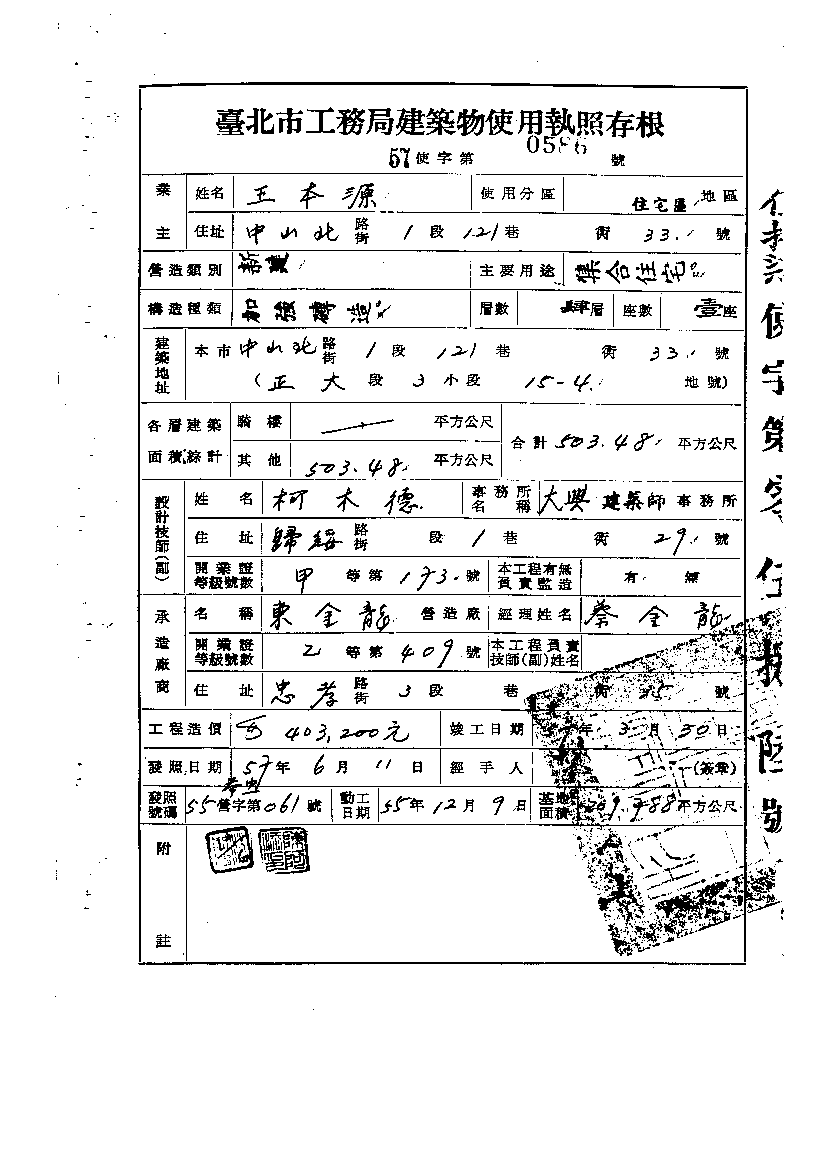 臺北市工務局建築物使用執照存根
57使字第0586號
業主 姓名 王本源 使用分區 住宅區 地區
住址 中山北路街 1段 121巷 街 33 號
營造類別 新建 主要用途 集合住宅
構造種類 加強磚造 層數 肆層 座數 壹座
建築地址 本市 中山北路街 1段 121巷 街 33 號
(正大段 3小段 15-4 地號)
各層建築面積綜計 騎樓 平方公尺 合計 503.48 平方公尺
其他 503.48 平方公尺
設計技師(副) 姓名 柯木德 事務所名稱 大興建築師事務所
住址 歸綏路街 段 1巷 街 29 號
開業證等級號數 甲等第173號 本工程有無負責監造 有 無
承造廠商 名稱 東金龍營造廠 經理姓名 蔡金龍
開業證等級號數 乙等第409號 本工程負責技師(副)姓名
住址 忠孝路街 3段 巷 街 號
工程造價 403,200元 竣工日期 年3月30日
發照日期 57年6月11日 經手人 (簽章)
發照號碼 55營字第061號 動工日期 55年12月9日 基地面積 平方公尺
附註